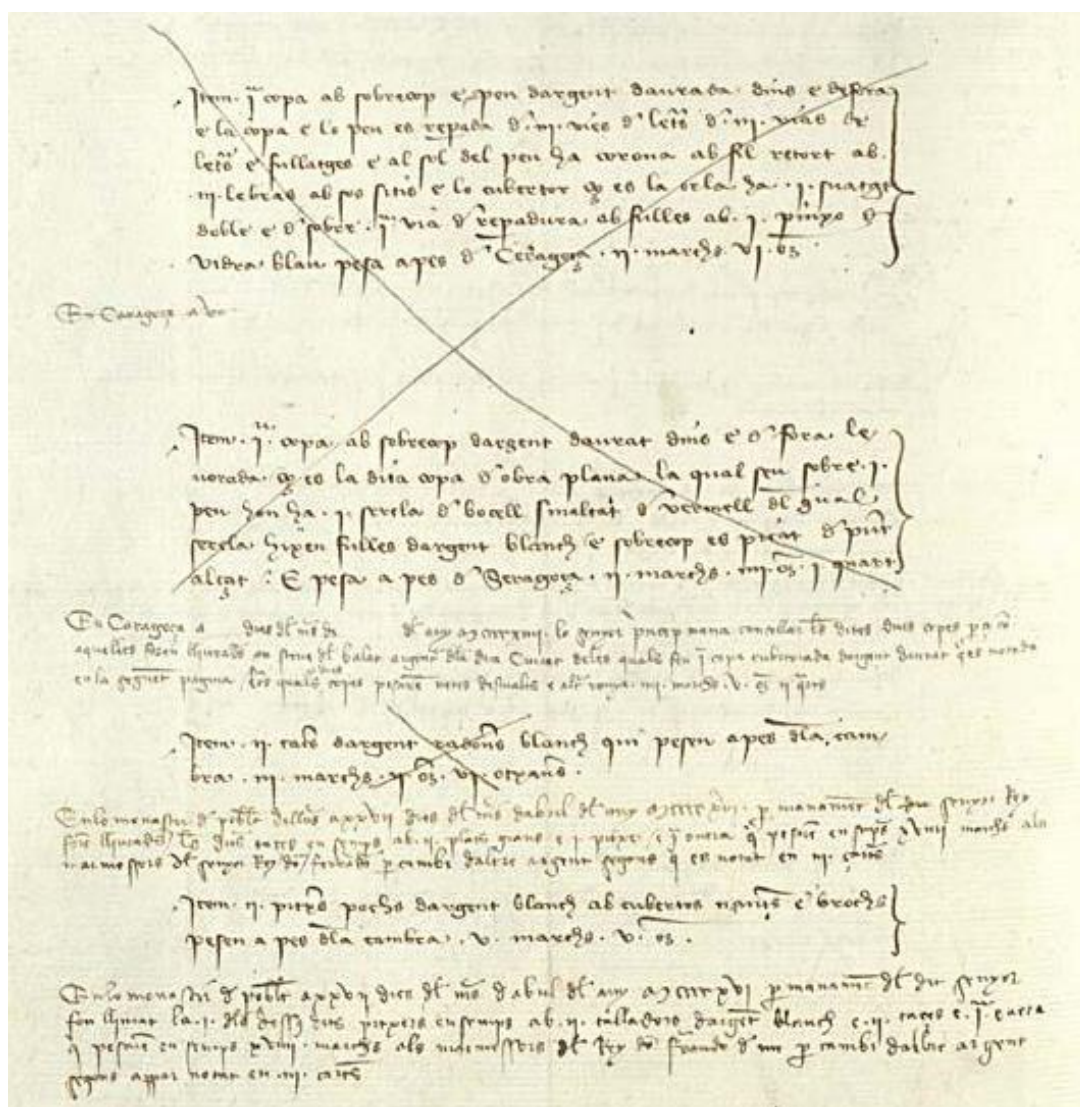 Item · jª copa ab sobrecop e peu dargent daurada dins e defora
e la copa e lo peu es repada d· iij· vies d· letrs d· iij· vias de
letrs e fullatges e al sol del peu ha corona ab fil retort ab·
·iij· lebras ab sos sitis e lo cubertor q es la orla ha · j· suatge
doble e d sobre · jª via d repadura ab fulles ab · j · pinyo d
vidra blau pesa a pes d Ceragoça · ij· marchs · vj · oz ·
En Caragoça a
Item · jª · copa ab sobrecop dargent daurat dins e d fora le
vorada q es la dita copa d obra plana la qual seu sobre · j ·
peu hon ha · j · sercla d bocell smaltat d vermell dl qual
sercla hixen fulles dargent blanch e sobrecop es picat d punt
alçat · E pesa a pes d Seragoça · ij · marchs · iiij · oz · j quart
En Caragoça a dies dl mes de dl any mccccxiiij · lo senyor princep mana cancellar les dites dues copes per ço com
aquelles foren lliurades an dl balar argenter dla dita Ciutat deles quals feu jª copa cubertorada dargent daurat q es notada
en la seguent pagina les quals dues copes pesaren netes · iiij · marchs · v · oz ij qrts
Item · ij · taces dargent blanch qui pesen a pes dla cam
bra · iij · marchs · ij oz · vj · otxaves ·
En lo monastir d poblet dilluns a xxvij dies dl mes dabril dl any mccccxvj · per manament dl dit senyor Rey
foren lliurades les dues taces ensemps ab · ij · plats grans e j pitxer e jª q pesaren ensemps xviiij marchs als
marmessors dl senyor Rey don ferrando per cambi daltre argent segons q es notat en iij cartes
Item · ij · pitxers pochs dargent blanch ab cubertes nanses e brochs
pesen a pes dla cambra · v · marchs · v · oz ·
En lo monastir d poblet a xxvij dies dl mes dabril dl any mccccxvj per manament dl dit senyor
fon lliurat la · j · dls dessus dits pitxers ensemps ab · ij · talladors dargent blanch e · ij · taces e · jª
q pesaren ensemps xviiij · marchs als marmessors dl Rey don per cambi daltre argent
segons appar notat en · iij · cartes